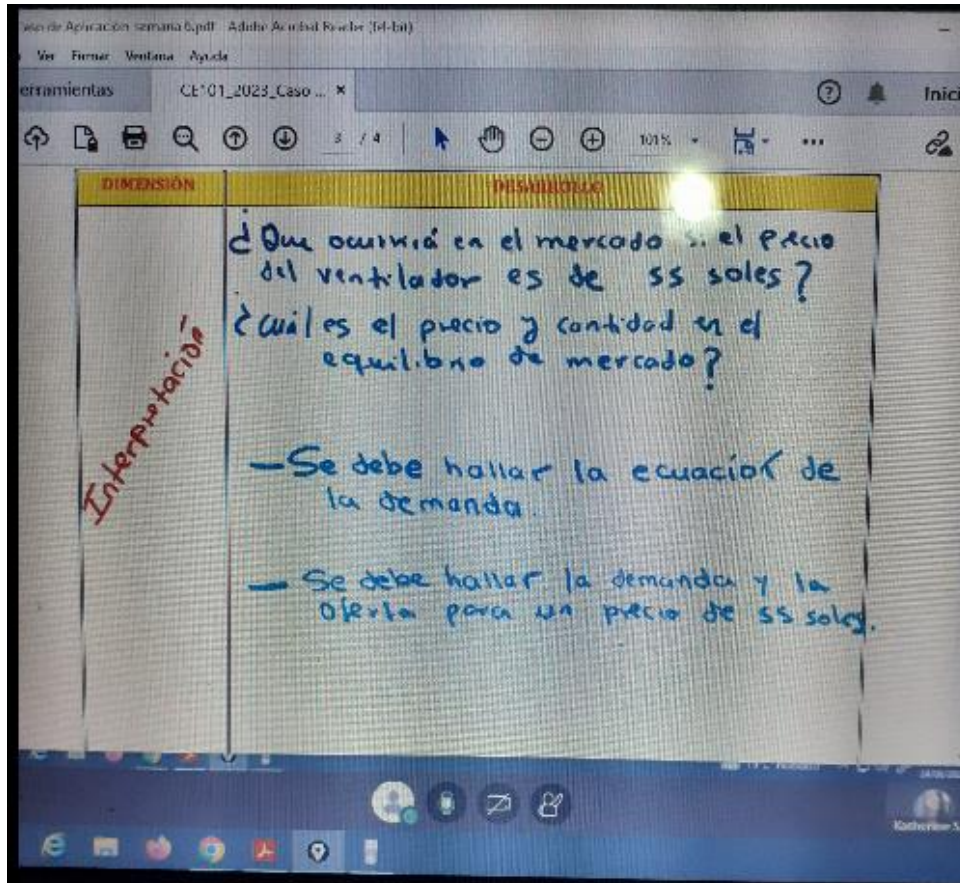 Caso de Aplicación semana 6.pdf - Adobe Acrobat Reader (64-bit)
Ver Firmar Ventana Ayuda
erramientas CE101_2023_Caso ... × Inici
3 / 4 101% ...
DIMENSIÓN DESARROLLO
¿Que ocurrirá en el mercado si el precio
del ventilador es de 55 soles?
¿Cuál es el precio y cantidad en el
equilibrio de mercado?
Interpretación
— Se debe hallar la ecuación de
la demanda.
— Se debe hallar la demanda y la
oferta para un precio de 55 soles.
Katherine S